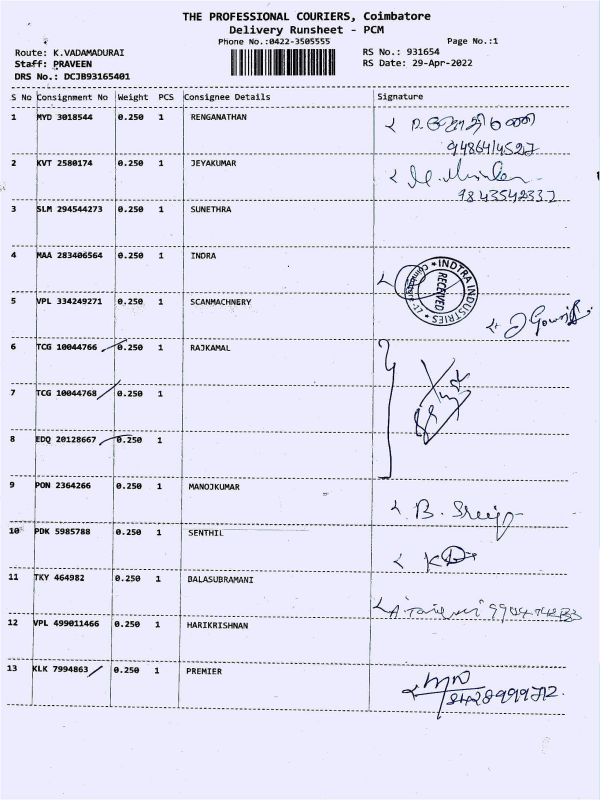 THE PROFESSIONAL COURIERS, Coimbatore
Delivery Runsheet - PCM
Phone No.:0422-3505555 Page No.:1
Route: K.VADAMADURAI RS No.: 931654
Staff: PRAVEEN RS Date: 29-Apr-2022
DRS No.: DCJB93165401
S No Consignment No Weight PCS Consignee Details Signature
1 MYD 3018544 0.250 1 RENGANATHAN
2 KVT 2580174 0.250 1 JEYAKUMAR
9843542337
3 SLM 294544273 0.250 1 SUNETHRA
4 MAA 283406564 0.250 1 INDRA
INDTRA INDUSTRIES
RECEIVED
5 VPL 334249271 0.250 1 SCANMACHNERY
6 TCG 10044766 0.250 1 RAJKAMAL
7 TCG 10044768 0.250 1
8 EDQ 20128667 0.250 1
9 PON 2364266 0.250 1 MANOJKUMAR
10 PDK 5985788 0.250 1 SENTHIL
11 TKY 464982 0.250 1 BALASUBRAMANI
12 VPL 499011466 0.250 1 HARIKRISHNAN
13 KLK 7994863 0.250 1 PREMIER